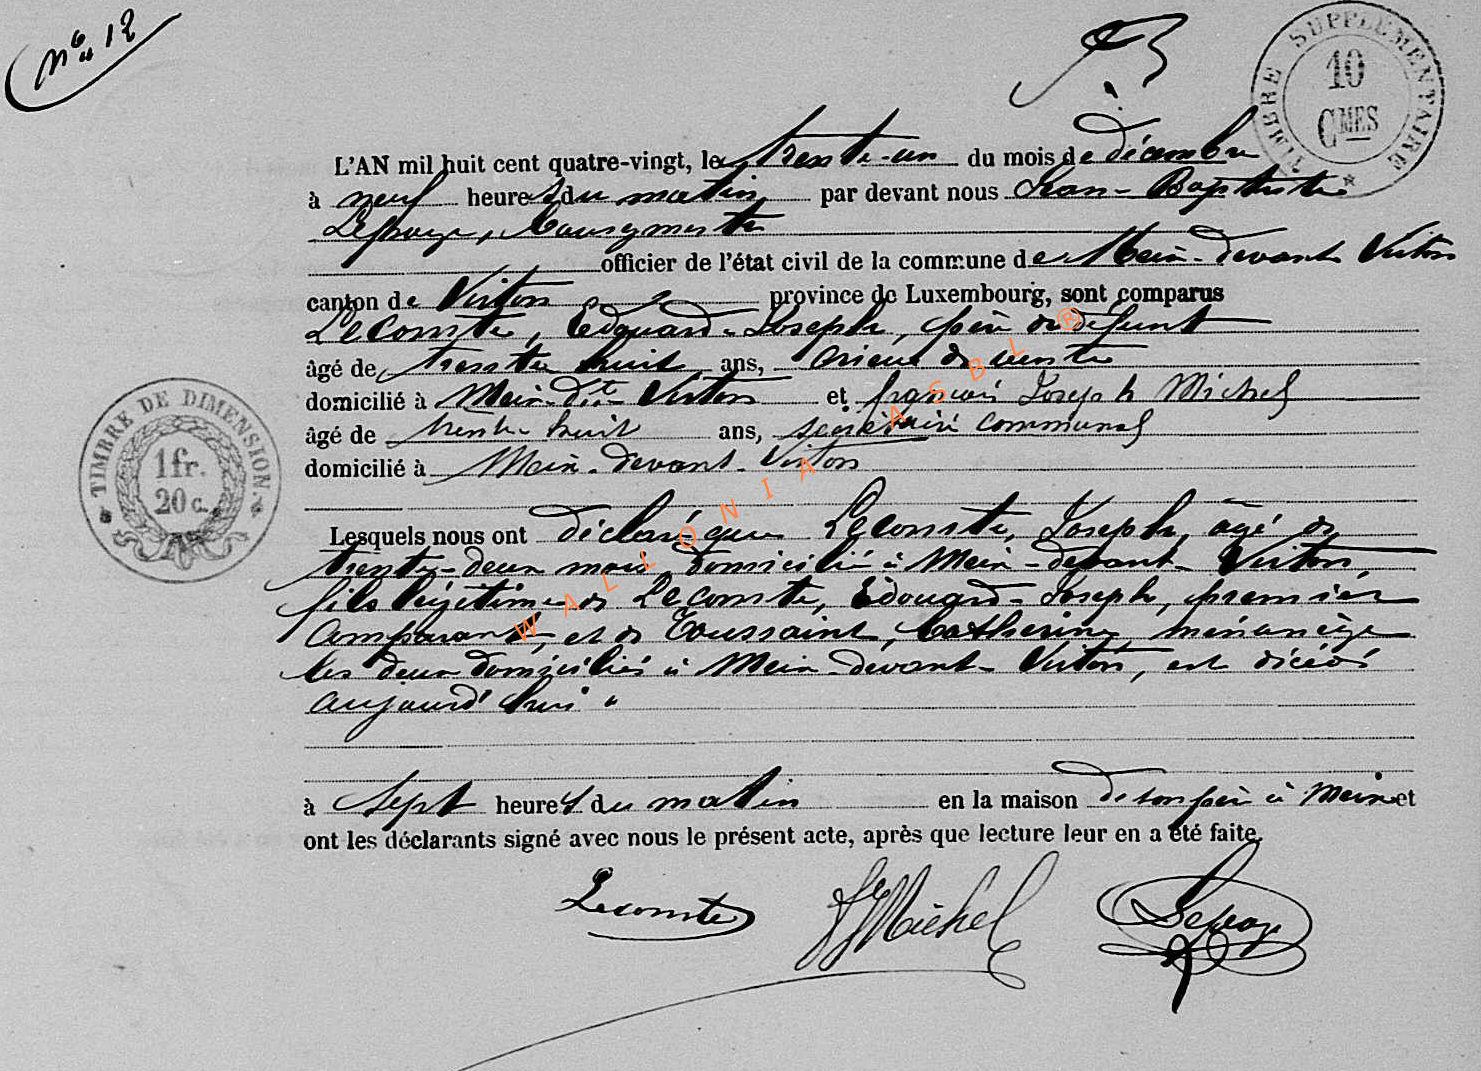 N° 12
TIMBRE SUPPLÉMENTAIRE
10
CMES
L'AN mil huit cent quatre-vingt, le trente-un du mois de décembre
à neuf heures du matin par devant nous Jean-Baptiste
Bourgmestre
officier de l'état civil de la commune de Meix-devant Virton
canton de Virton province de Luxembourg, sont comparus
Lecomte, Edouard-Joseph, père du défunt
âgé de trente huit ans,
domicilié à Meix-dt-Virton et françois Joseph Michel
âgé de trente huit ans, secrétaire communal
domicilié à Meix-devant-Virton
TIMBRE DE DIMENSION.
1 fr.
20 c.
Lesquels nous ont déclaré que Lecomte, Joseph, âgé de
trente-deux mois, domicilié à Meix-devant-Virton,
fils légitime de Lecomte, Edouard-Joseph, premier
comparant, et de Toussaint, Catherine, ménagère
les deux domiciliés à Meix-devant-Virton, est décédé
aujourd'hui
à sept heures du matin en la maison de son père à Meix et
ont les déclarants signé avec nous le présent acte, après que lecture leur en a été faite.
Lecomte FJMichel
WALLONIA ASBL ®